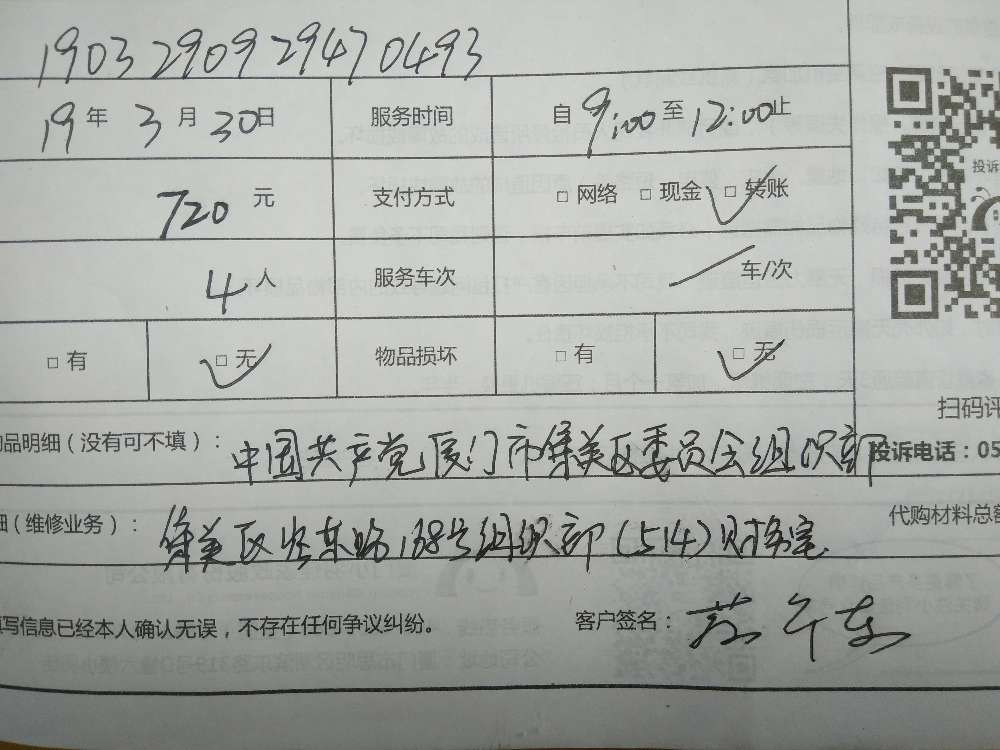 190329092947 0493
19年 3月 30日 服务时间 自 9:00 至 12:00 止
投诉
720 元 支付方式 □ 网络 □ 现金 □ 转账
4 人 服务车次 车/次
□ 有 □ 无 物品损坏 □ 有 □ 无
扫码评
品明细（没有可不填）： 中国共产党厦门市集美区委员会组织部
投诉电话：05
（维修业务）： 集美区 路 号组织部（514）财务室
代购材料总额
填写信息已经本人确认无误，不存在任何争议纠纷。 客户签名：